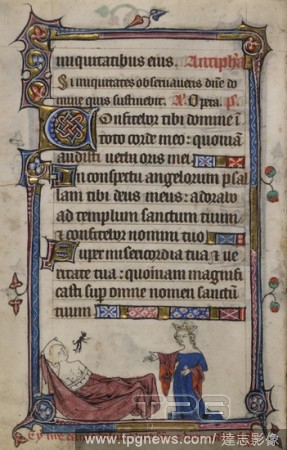 iniquitatibus eius. Antiph̃a
Si iniquitates obseruaueris dñe do
mine quis sustinebit. A. Opera. ps.
Confitebor tibi domine ĩ
toto corde meo: quoniã
audisti uerba oris mei.
In conspectu angelorum psal
lam tibi deus meus: adorabo
ad templum sanctum tuum
et confitebor nomini tuo
Super misericordia tua et ue
ritate tua: quoniam magnifi
casti sup omne nomen sanctũ
tuum
TPG
www.tpgnews.com/達志影像